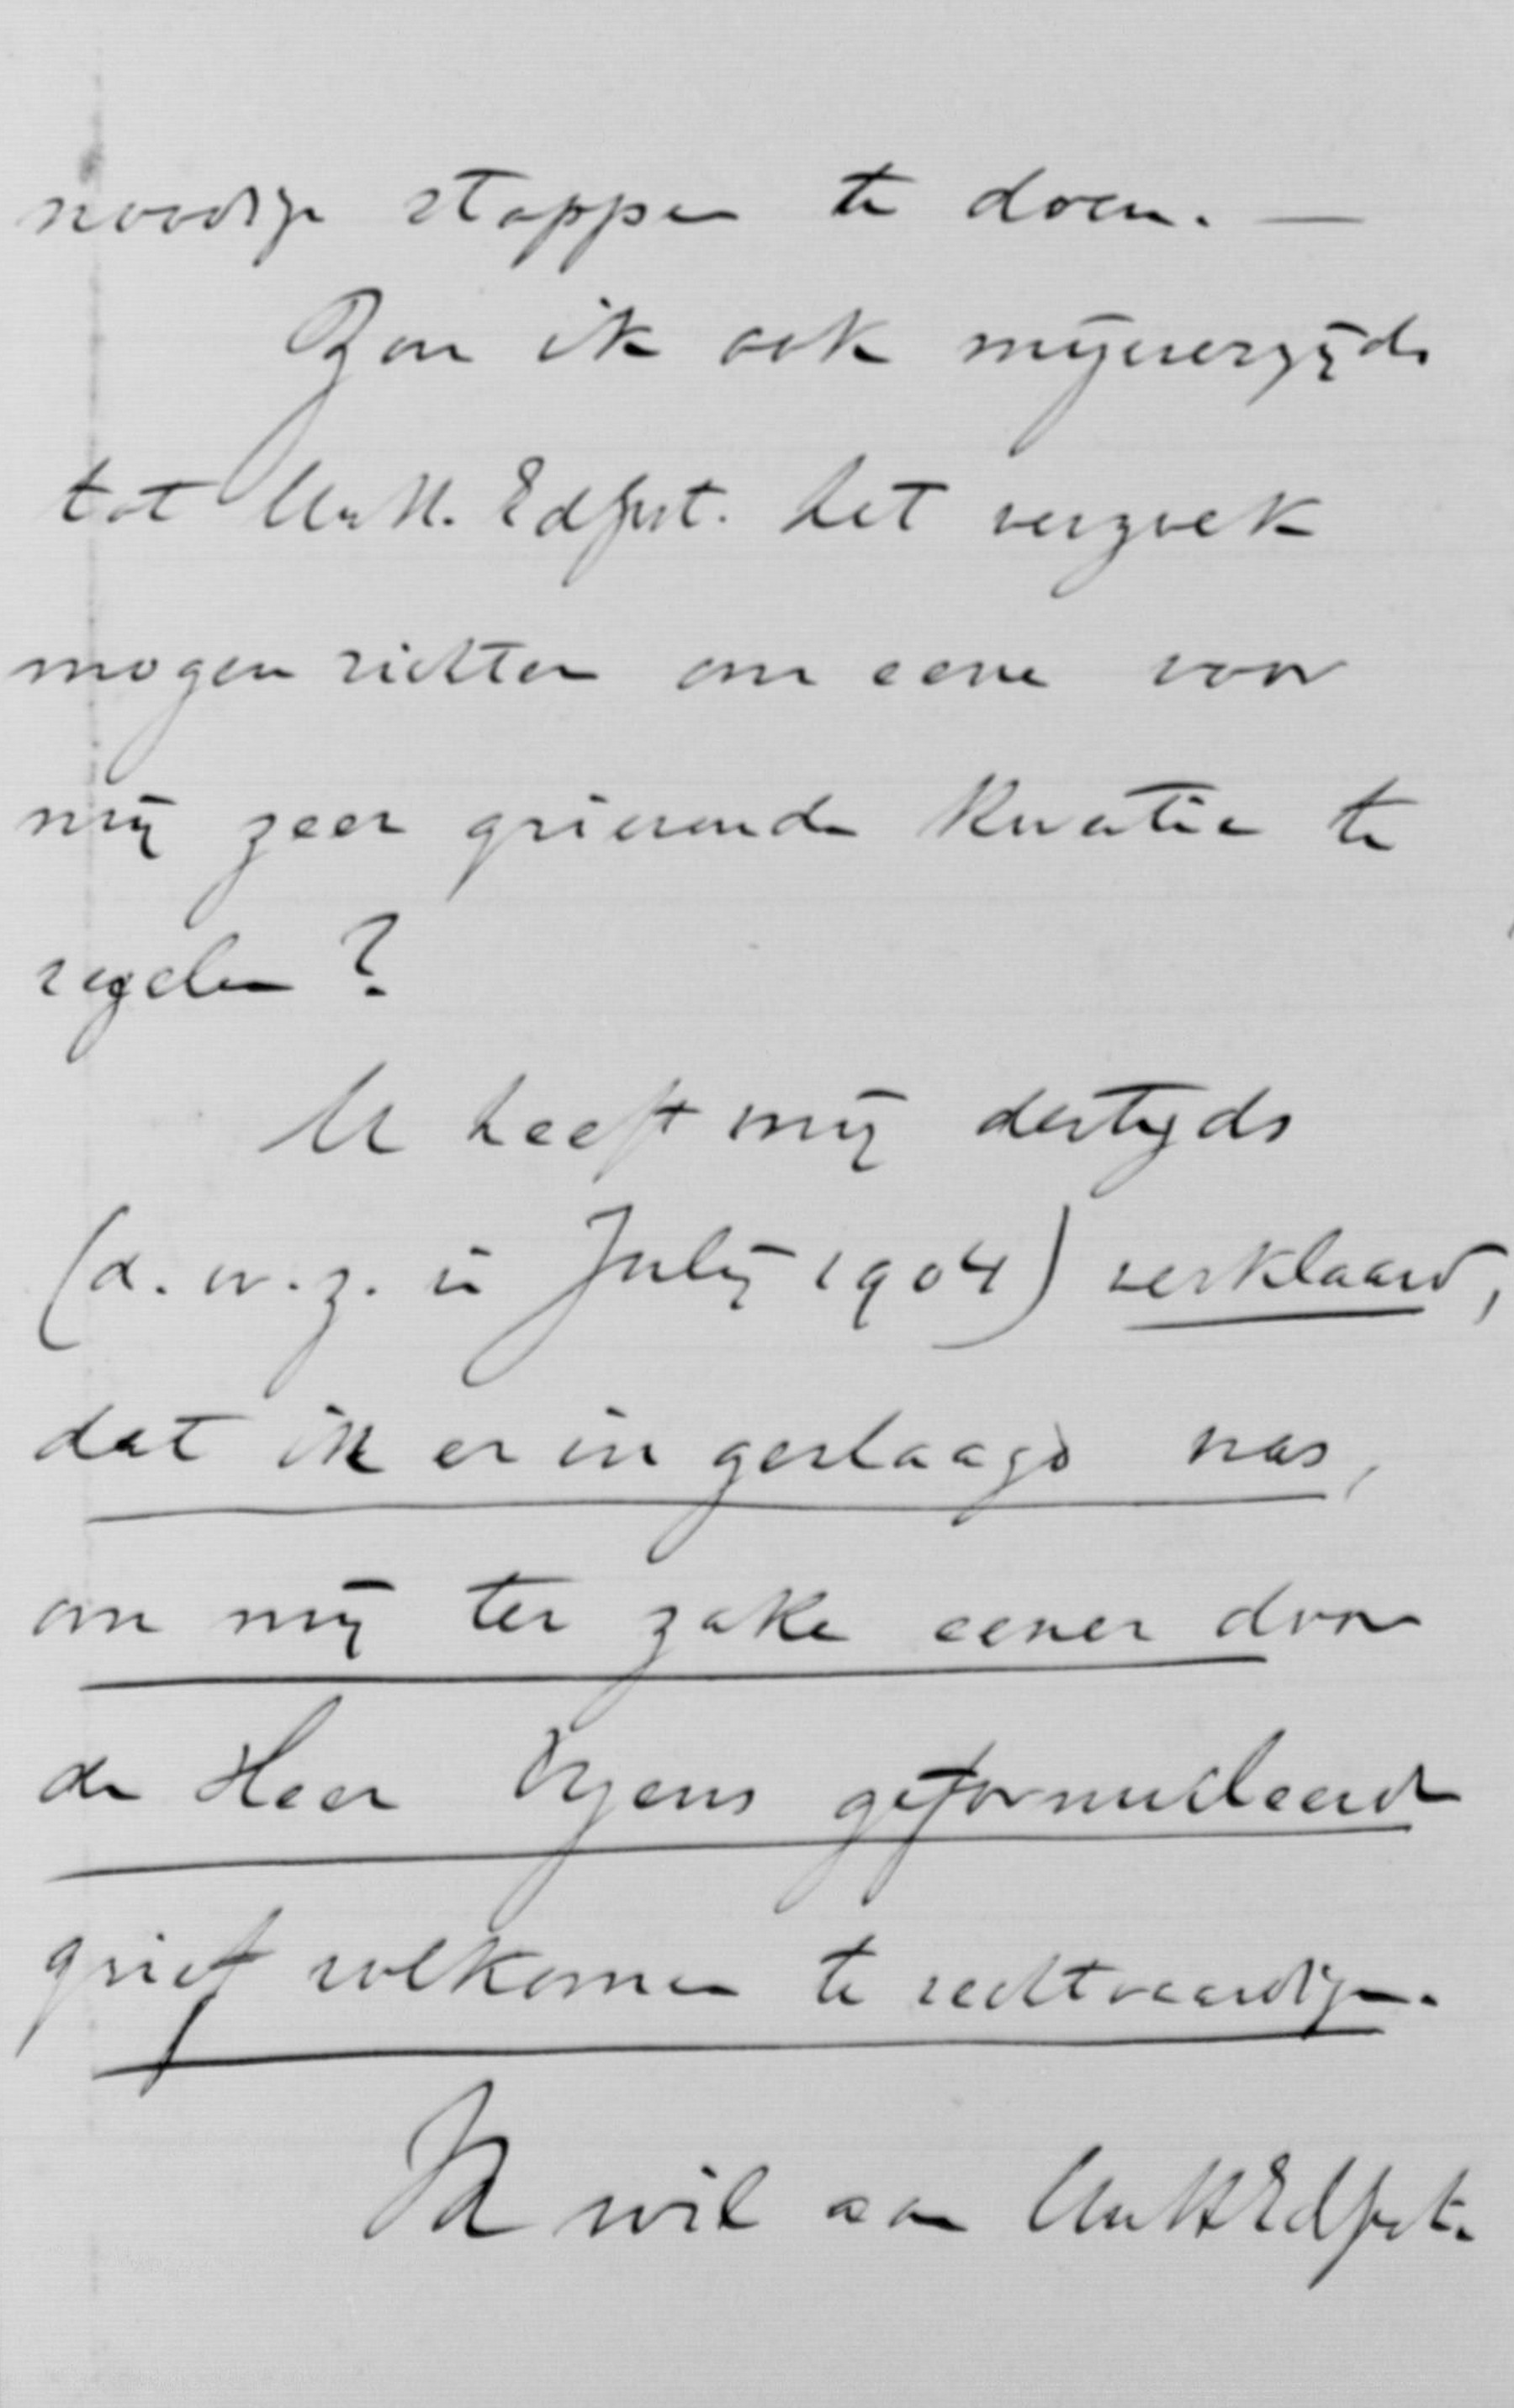 noodige stappen te doen. —
Zou ik ook mijnerzijds
tot UwH.Edgest. het verzoek
mogen richten om eene voor
mij zeer grievende kwestie te
regelen?
U heeft mij destijds
(d.w.z. in Julij 1904) verklaard,
dat ik er in geslaagd was,
om mij ter zake eener door
de Heer geformuleerde
grief volkomen te rechtvaardigen.
Ik wil aan UwHEdgest.